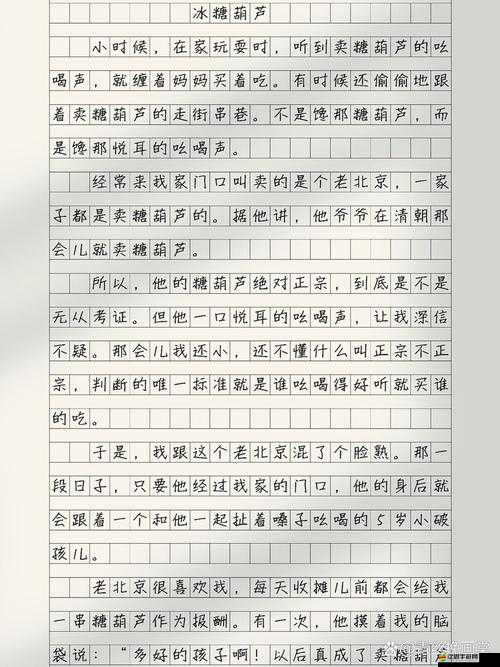 冰糖葫芦
小时候，在家玩耍时，听到卖糖葫芦的吆
喝声，就缠着妈妈买着吃。有时候还偷偷地跟
着卖糖葫芦的走街串巷。不是馋那糖葫芦，而
是馋那悦耳的吆喝声。
经常来我家门口叫卖的是个老北京，一家
子都是卖糖葫芦的。据他讲，他爷爷在清朝那
会儿就卖糖葫芦。
所以，他的糖葫芦绝对正宗，到底是不是
无从考证。但他一口悦耳的吆喝声，让我深信
不疑。那会儿我还小，还不懂什么叫正宗不正
宗，判断的唯一标准就是谁吆喝得好听就买谁
的吃。
于是，我跟这个老北京混了个脸熟。那一
段日子，只要他经过我家的门口，他的身后就
会跟着一个和他一起扯着嗓子吆喝的5岁小破
孩儿。
老北京很喜欢我，每天收摊儿前都会给我
一串糖葫芦作为报酬。有一次，他摸着我的脑
袋说：“多好的孩子啊！以后真成了卖糖葫芦